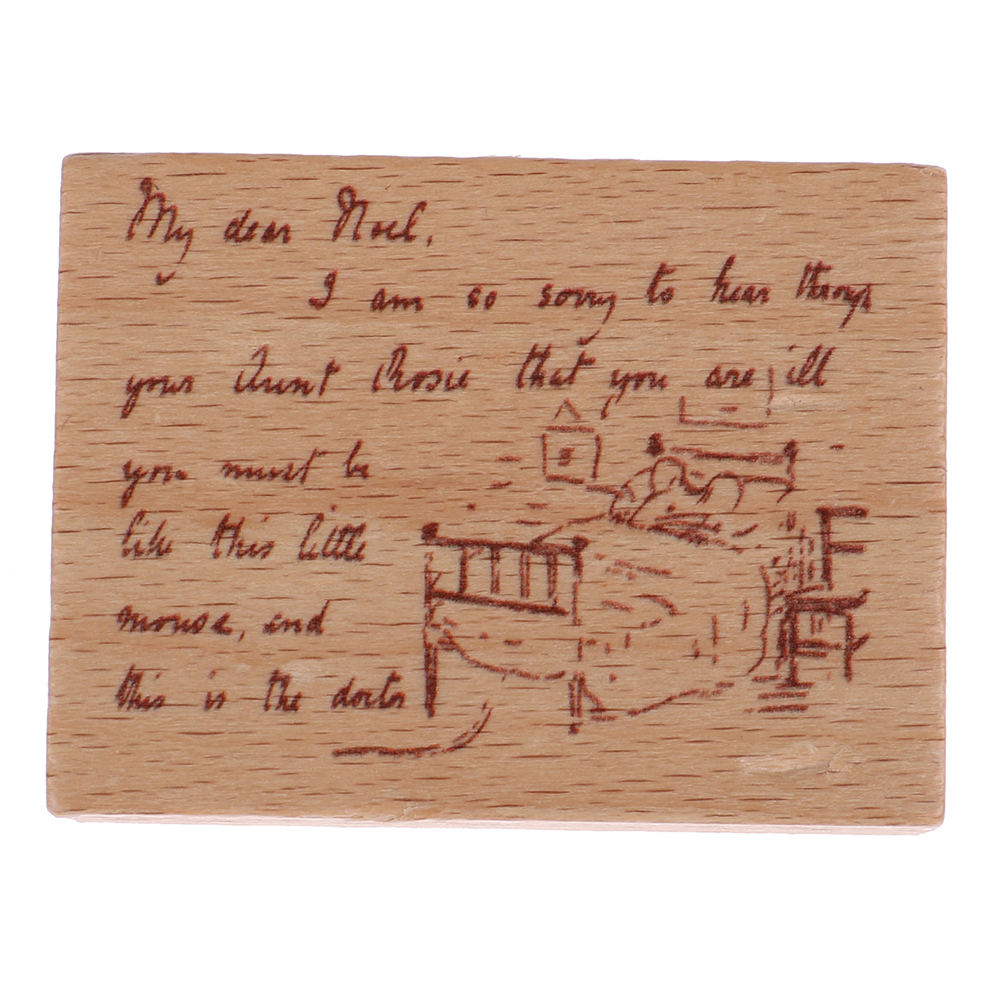 My dear Noel,
I am so sorry to hear through
your Aunt Rosie that you are ill
you must be
like this little
mouse, and
this is the doctor